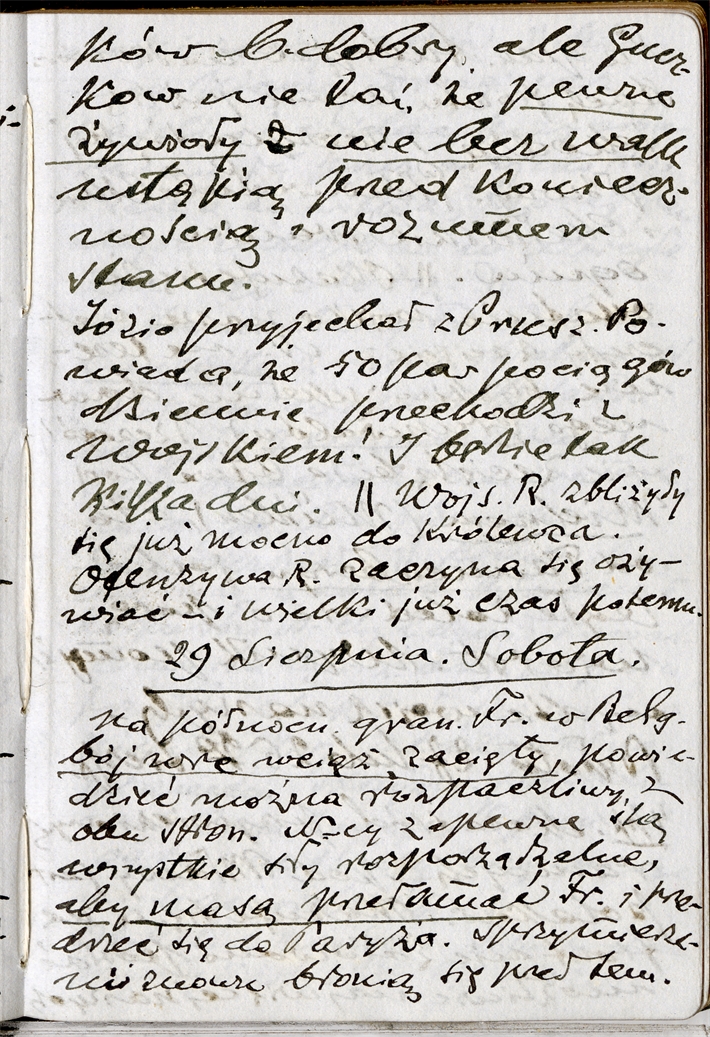 ków b. dobry, ale Gucz-
kow nie tai, że pewne
żywioły nie bez walk
ustąpią przed koniecz-
nością i rozumem
stanu.
Józio przyjechał z Prusz. Po-
wiada, że 50 par pociągów
dziennie przechodzi z
wojskiem! I będzie tak
kilka dni. || Wojs. R. zbliżyły
się już mocno do Królewca.
Ofenzywa R. zaczyna się oży-
wiać – i wielki już czas potemu.
29 Sierpnia. Sobota.
Na północn. gran. Fr. w Belg.
bój wre wciąż zacięty, powie-
dzieć można rozpaczliwy, z
obu stron. N-cy zapewne ślą
wszystkie siły rozporządzalne,
aby masą przełamać Fr. i prze-
drzeć się do Paryża. Sprzymierze-
ni znowu bronią się przed tem.